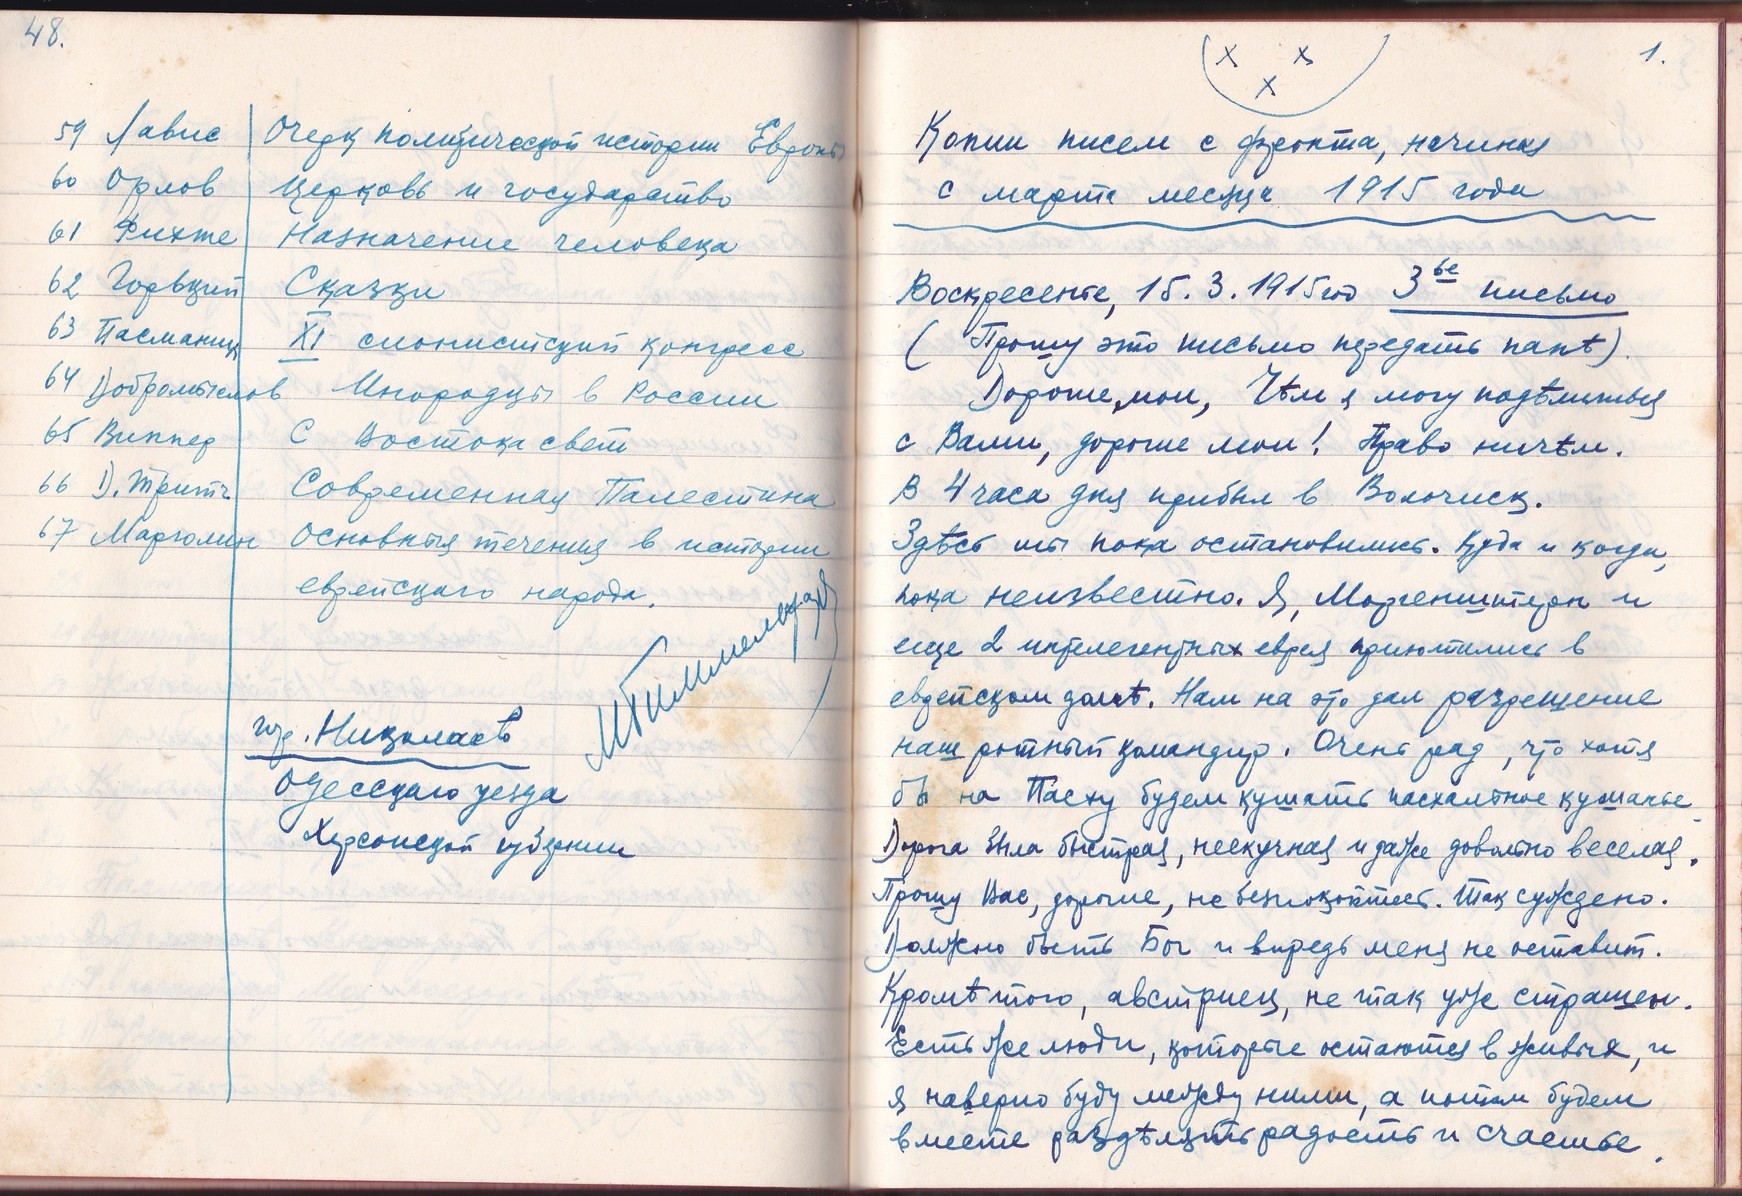 48.
59 Лавис Очерк политической истории Европы
60 Орлов Церковь и государство
61 Фихте Назначение человека
62 Горький Сказки
63 Пасманик XI сионистский конгресс
64 Добромыслов Инородцы в России
65 Виппер С Востока свет
66 Д. Тритч Современная Палестина
67 Марголин Основныя течения в истории
еврейскаго народа.
гор. Николаев
Одесскаго уезда
Херсонской губернии
1.
x x
x
Копии писем с фронта, начиная
с марта месяца 1915 года
Воскресенье, 15.3.1915го 3ье письмо
(Прошу это письмо передать папѣ).
Дорогие мои, Чѣм я могу подѣлиться
с Вами, дорогие мои! Право ничѣм.
В 4 часа дня прибыл в Волочиск.
Здѣсь мы пока остановились. Куда и когда,
пока неизвестно. Я, Моргенштерн и
еще 2 интелегентных еврея приютились в
еврейском домѣ. Нам на это дал разрешение
наш ротный командир. Очень рад, что хотя
бы на Пасху будем кушать пасхальное кушанье.
Дорога была быстрая, нескучная и даже довольно веселая.
Прошу Вас, дорогие, не безпокойтесь. Так суждено.
Должно быть Бог и впредь меня не оставит.
Кромѣ того, австриец, не так уже страшен.
Есть же люди, которые остаются в живых, и
я наверно буду между ними, а потом будем
вместе раздѣлять радость и счастье.